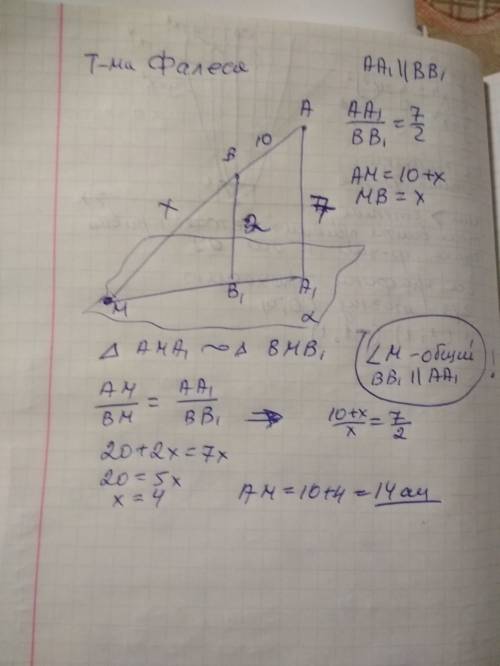 Т-ма Фалеса
AA₁ || BB₁
AA₁/BB₁ = 7/2
AM = 10+x
MB = x
A
10
B
x
7
2
B₁
A₁
M
α
Δ AMA₁ ~ Δ BMB₁
∠M - общий
BB₁ || AA₁
!
AM/BM = AA₁/BB₁ ⇒ (10+x)/x = 7/2
20+2x = 7x
20 = 5x
x = 4
AM = 10+4 = 14 см